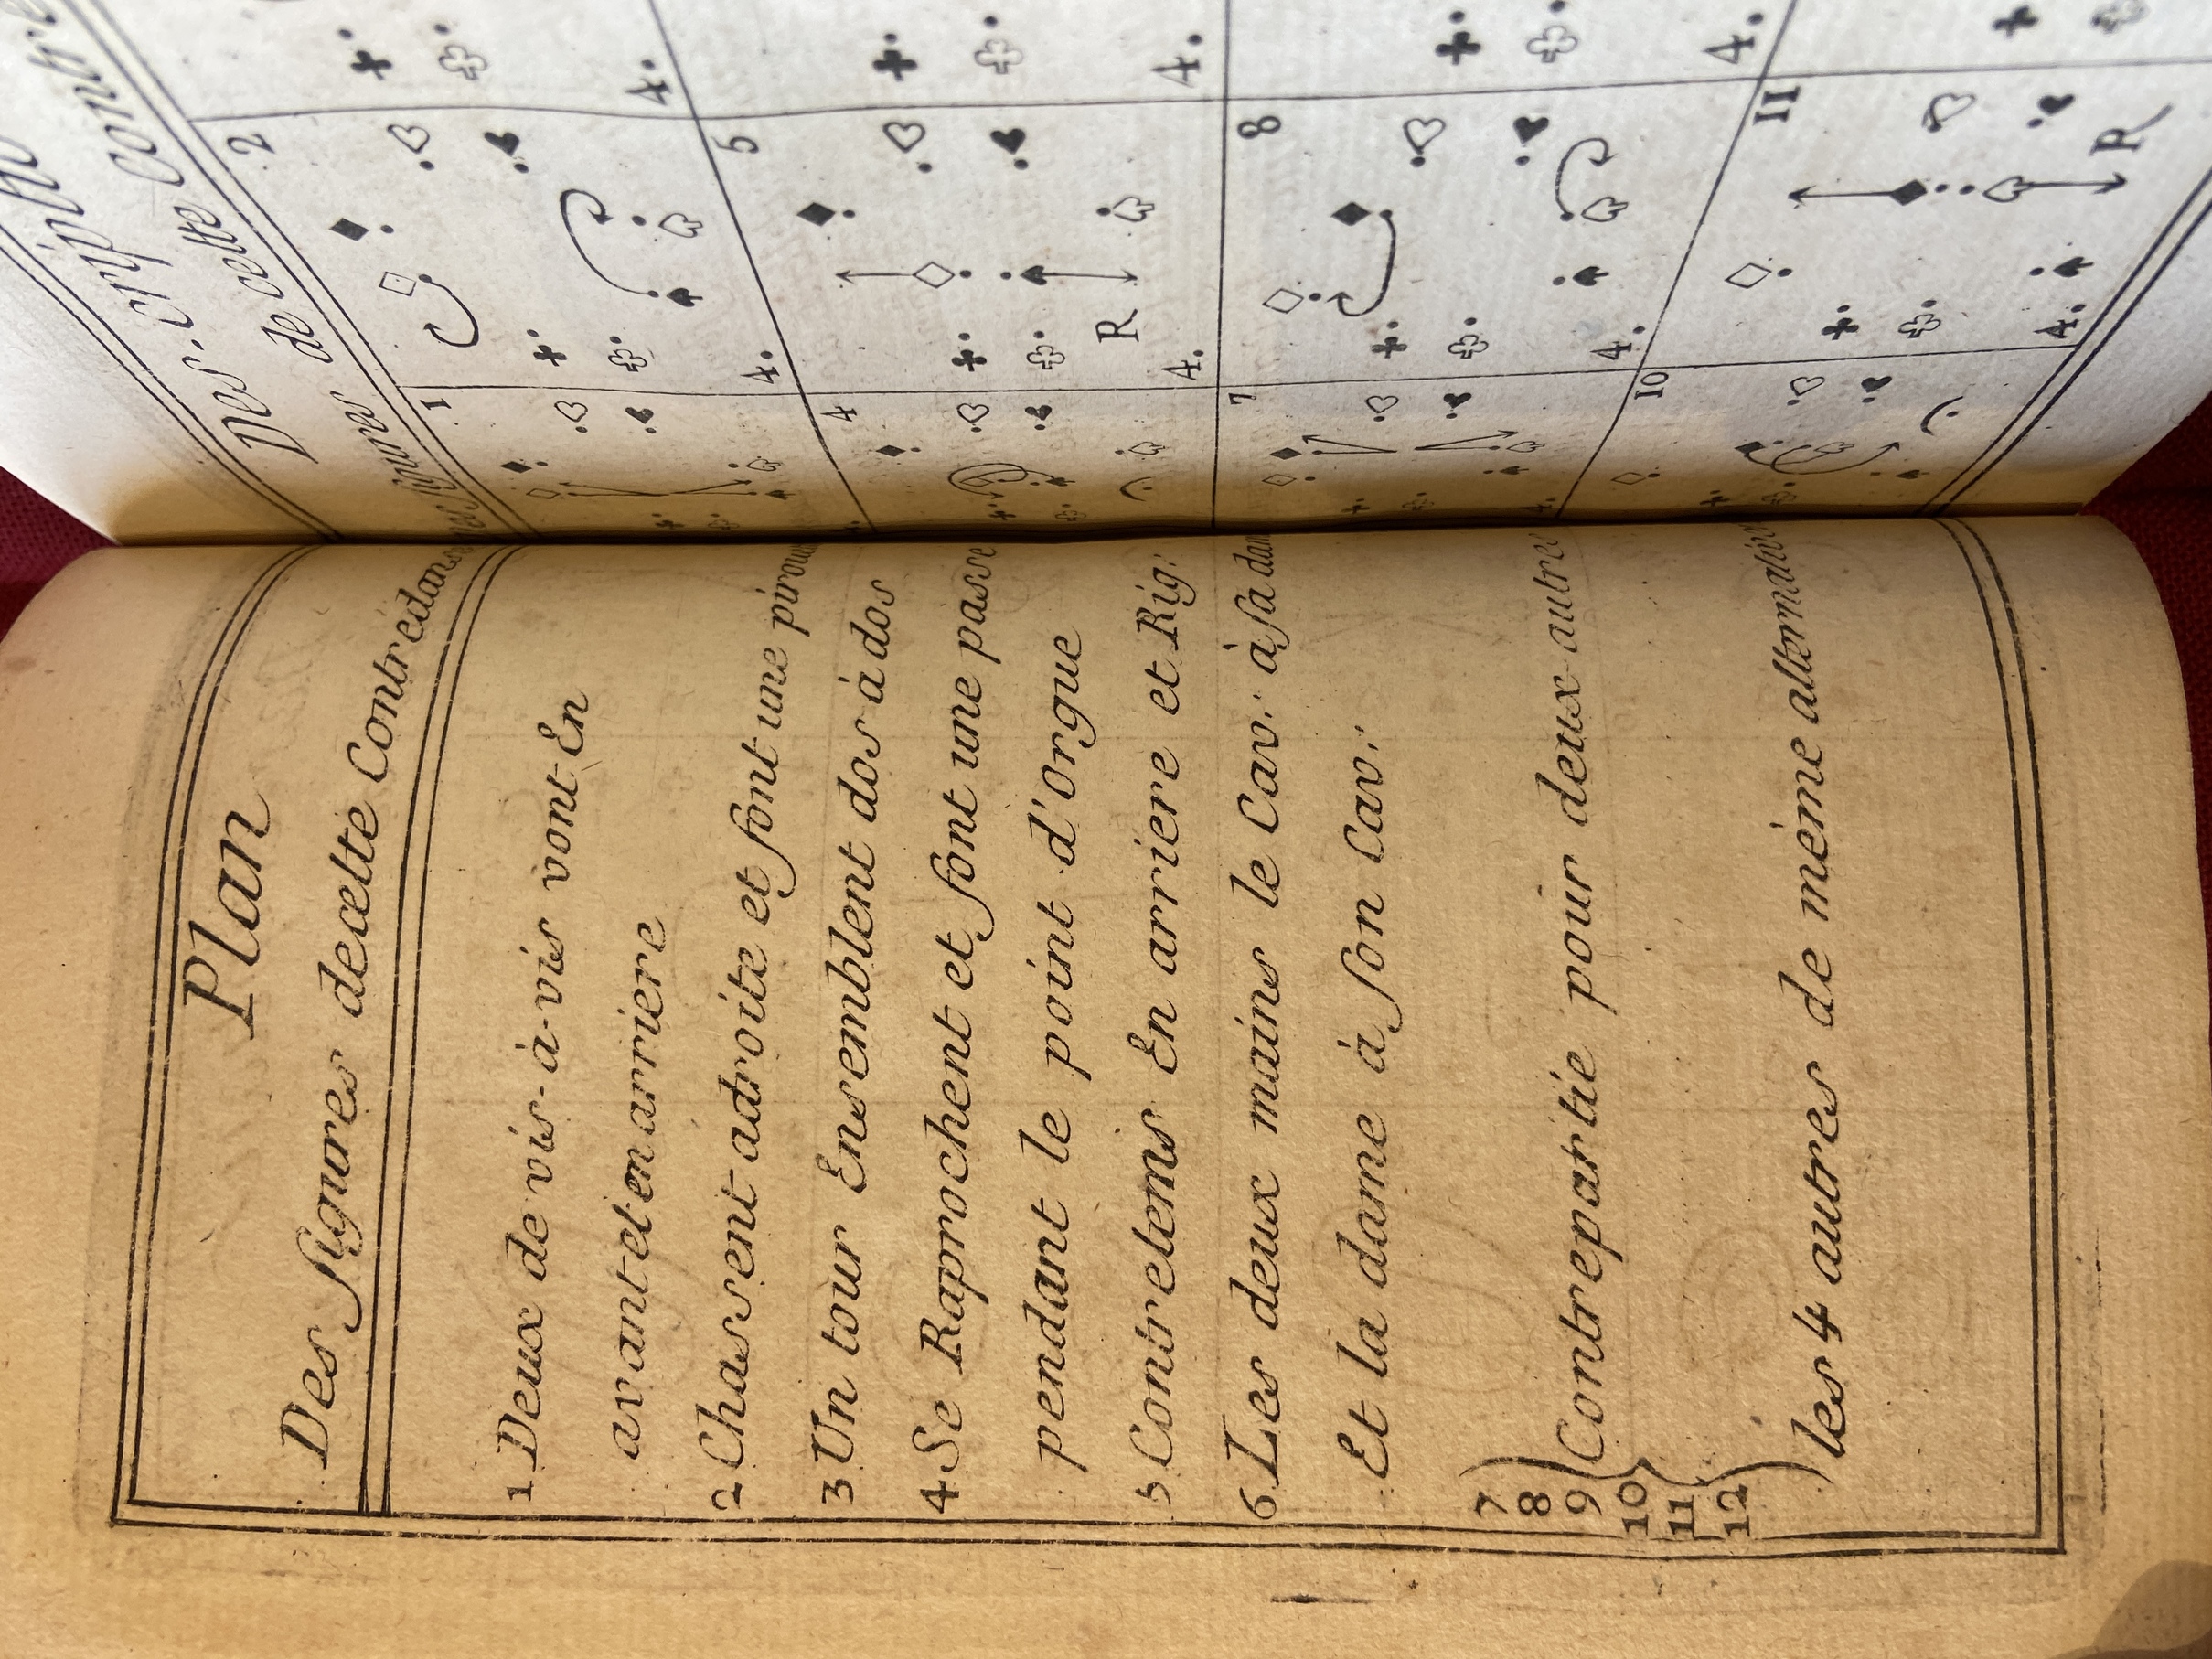 Plan
Des figures de cette Contredanse
1 Deux de vis-à-vis vont En
avant et en arriere
2 Chassent adroite et font une pirou
3 Un tour Ensemblent dos à dos
4 Se Raprochent et font une passe
pendant le point d'Orgue
5 Contretems En arriere et Rig:
6 Les deux mains le Cav: à sa dam
Et la dame à son Cav:
7
8
9 Contrepartie pour deux autre
10
11
12
les 4 autres de mème alternativ
Des
de cette Contre
figures
1
2
4.
4.
4
5
R
4.
4.
7
8
4.
4.
10
11
R
4.